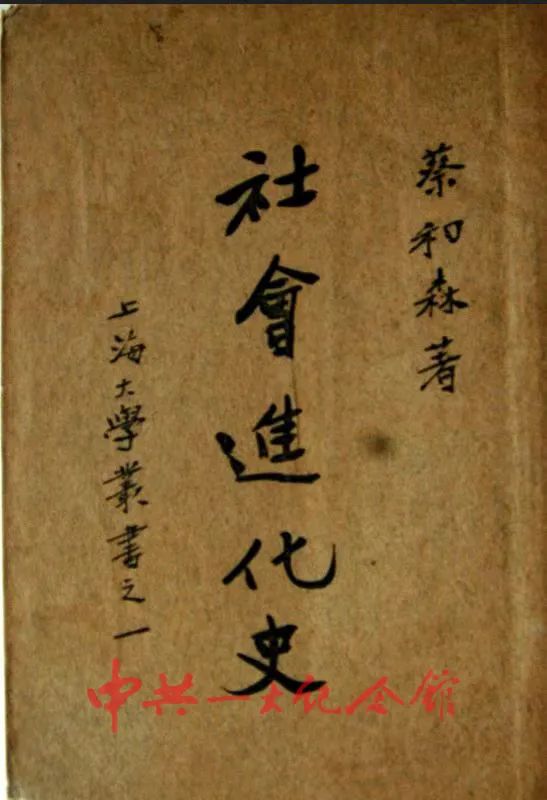 蔡和森著
社會進化史
上海大學叢書之一
中共一大纪念馆